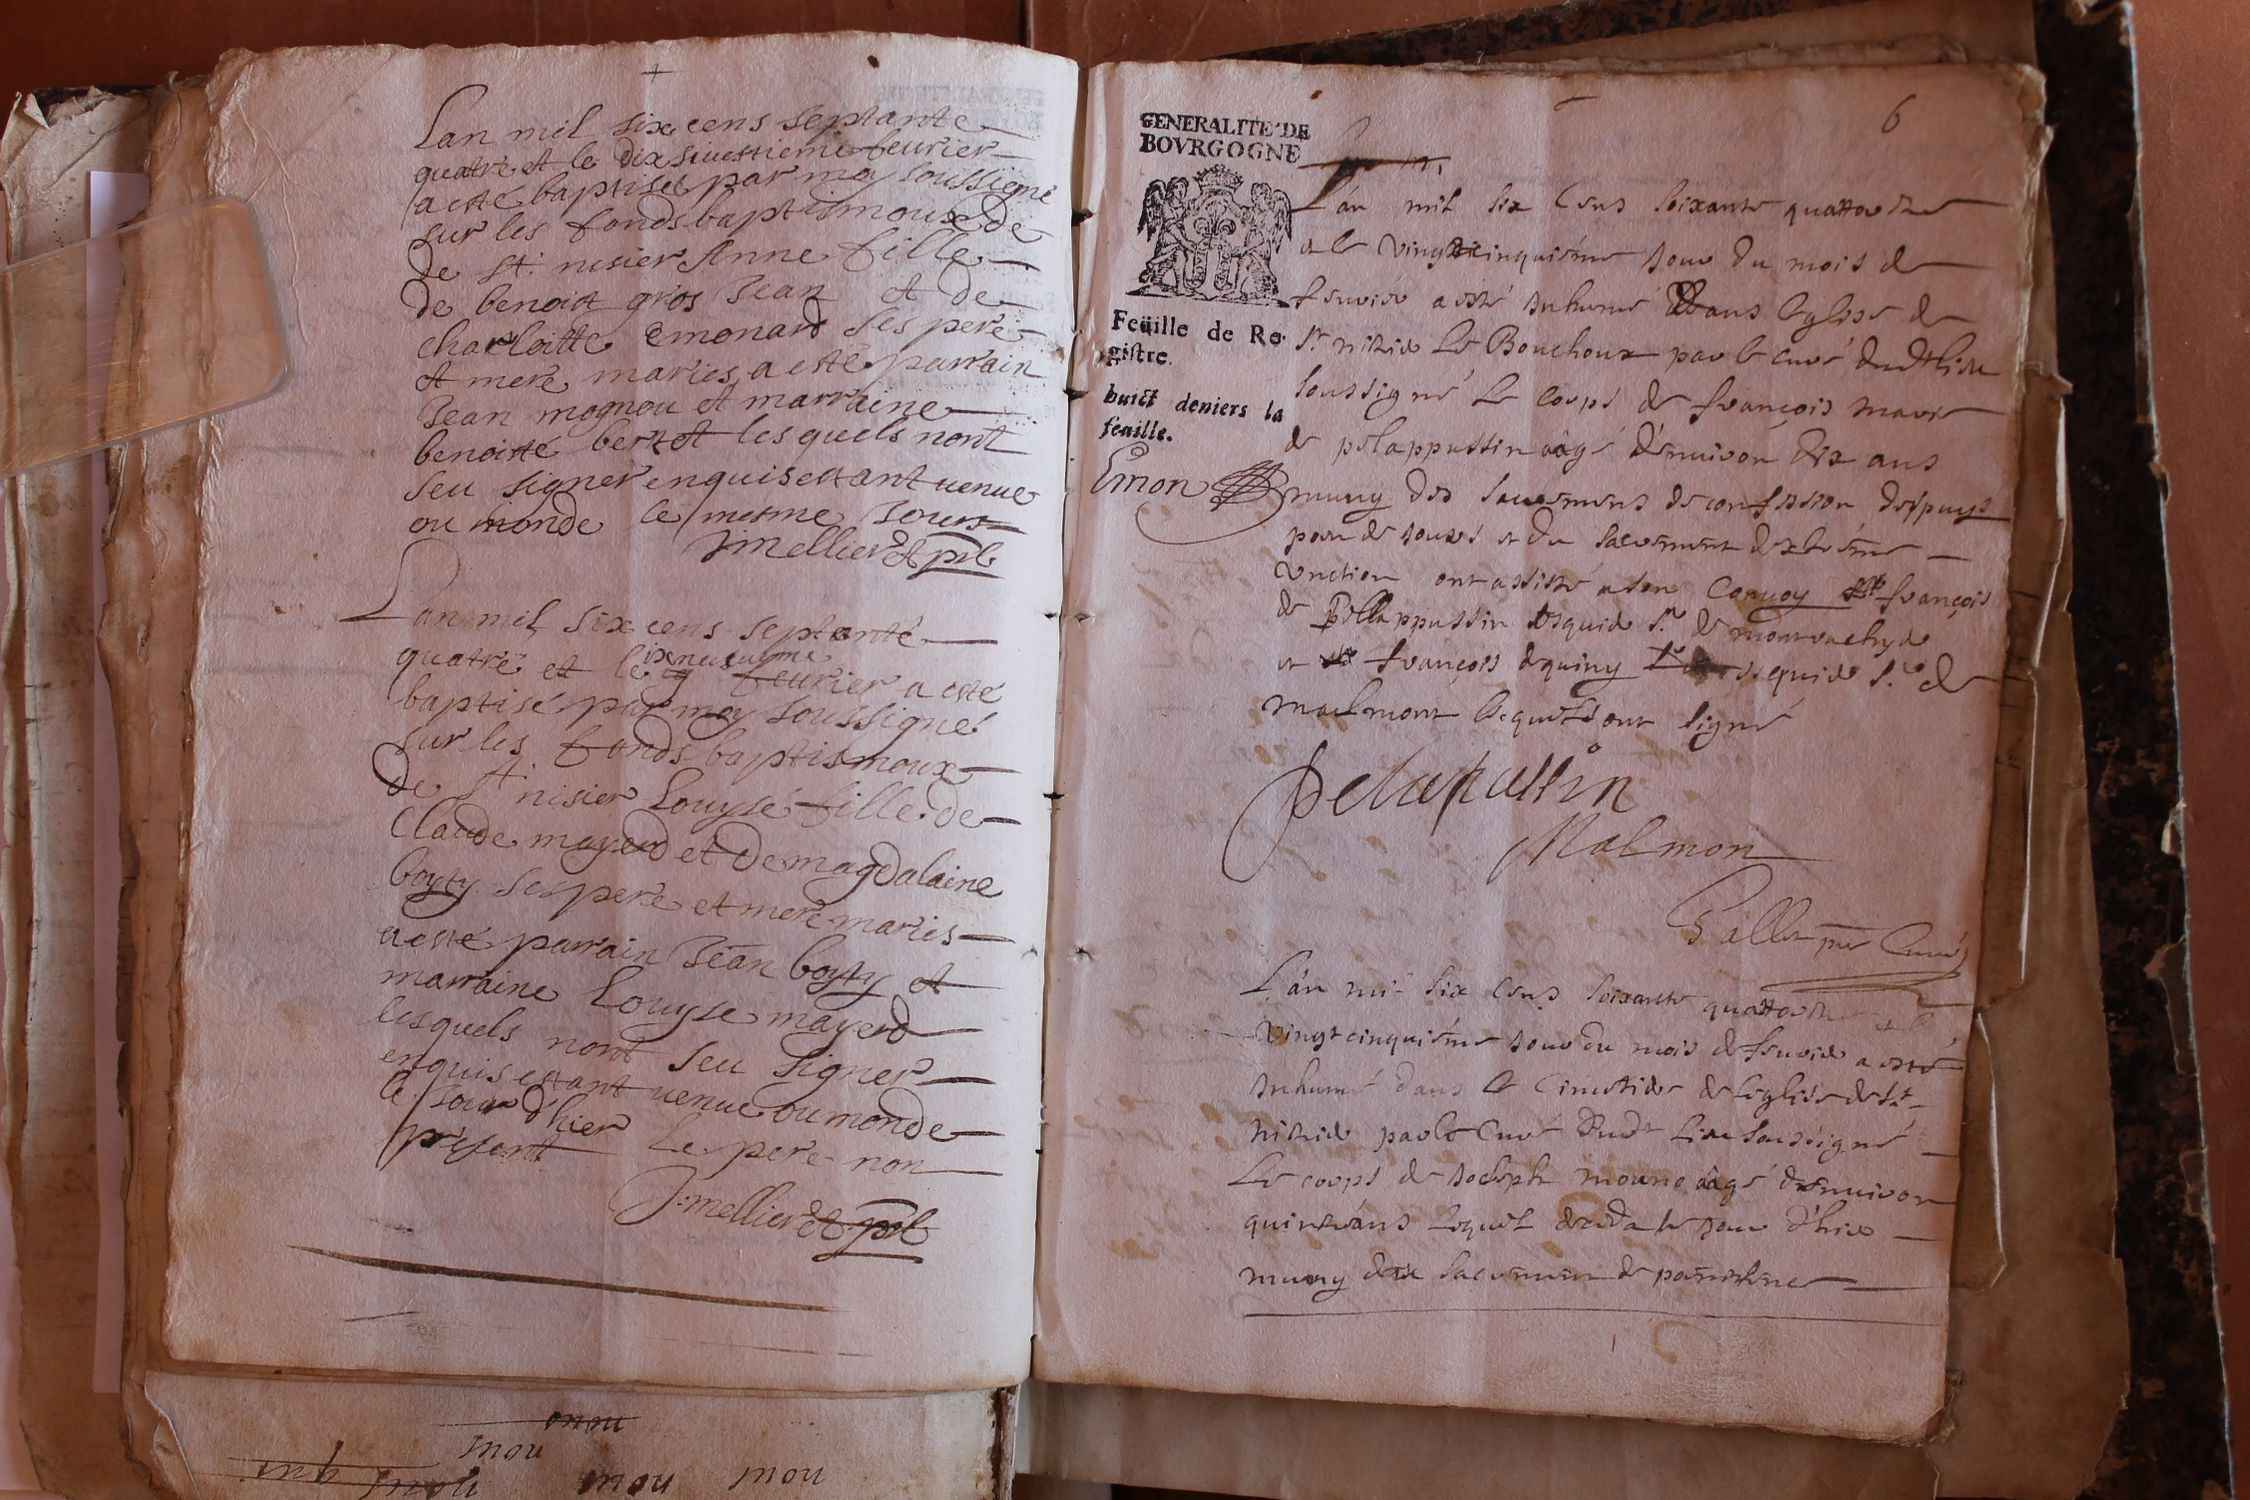 Lan mil six cens septante
quatre et le dix sivestieme feurier
a esté baptisee par moy soussigné
sur les fonds baptismoux de
de st. nisier Anne fille
de benoist gros Jean et de
charloitte emonard ses pere
et mere maries a esté parrain
Jean mognou et marraine
benoitte bertet lesquels nont
seu signer enquis estant venue
ou monde le mesme jour
Jmellier pb
Lan mil six cens septante
quatre et le feurier a esté
baptisé par moy soussigné
sur les fonds baptismoux
de st nisier Louyse fille de
Claude mayerd et de magdalaine
boyty ses pere et mere maries
a esté parrain Jean boyty et
marraine Louyse mayerd
lesquels nont seu signer
enquis estant venue ou monde
le jour d'hier le pere non
présent
J. mellier pb
onou
mou
mou mou
6
GENERALITE DE
BOVRGOGNE
Feüille de Re-
gistre.
huict deniers la
feüille.
Emon
L'an mil six Cens soixante quattorze
et le vingtcinquiéme jour du mois de
feurier a esté inhumé dans l'eglise de
st nizier Le Bouchoux par le curé dudt lieu
soussigné Le corps de françois marie
de pelappussin aagé d'enuiron dix ans
muny des sacremens de confession despuys
peu de jours et du sacrement d'extréme
vnction ont assisté a son Conuoy françois
de Pellappussin esquier sr. de
et françois dequiny esquier sr. de
malmont lesquels ont signé
Pelapussin
Malmon
Gallet pre Curé
L'an mil six cens soixante quattorze et le
vingtcinquiéme jour du mois de feurier a esté
inhumé dans le Cimetiere de l'eglise de st
nizier par le Curé dudt Lieu soussigné
Le corps de Joseph aagé d'enuiron
quinze ans lequel deceda le jour d'hier
muny du sacrement de pœnitence